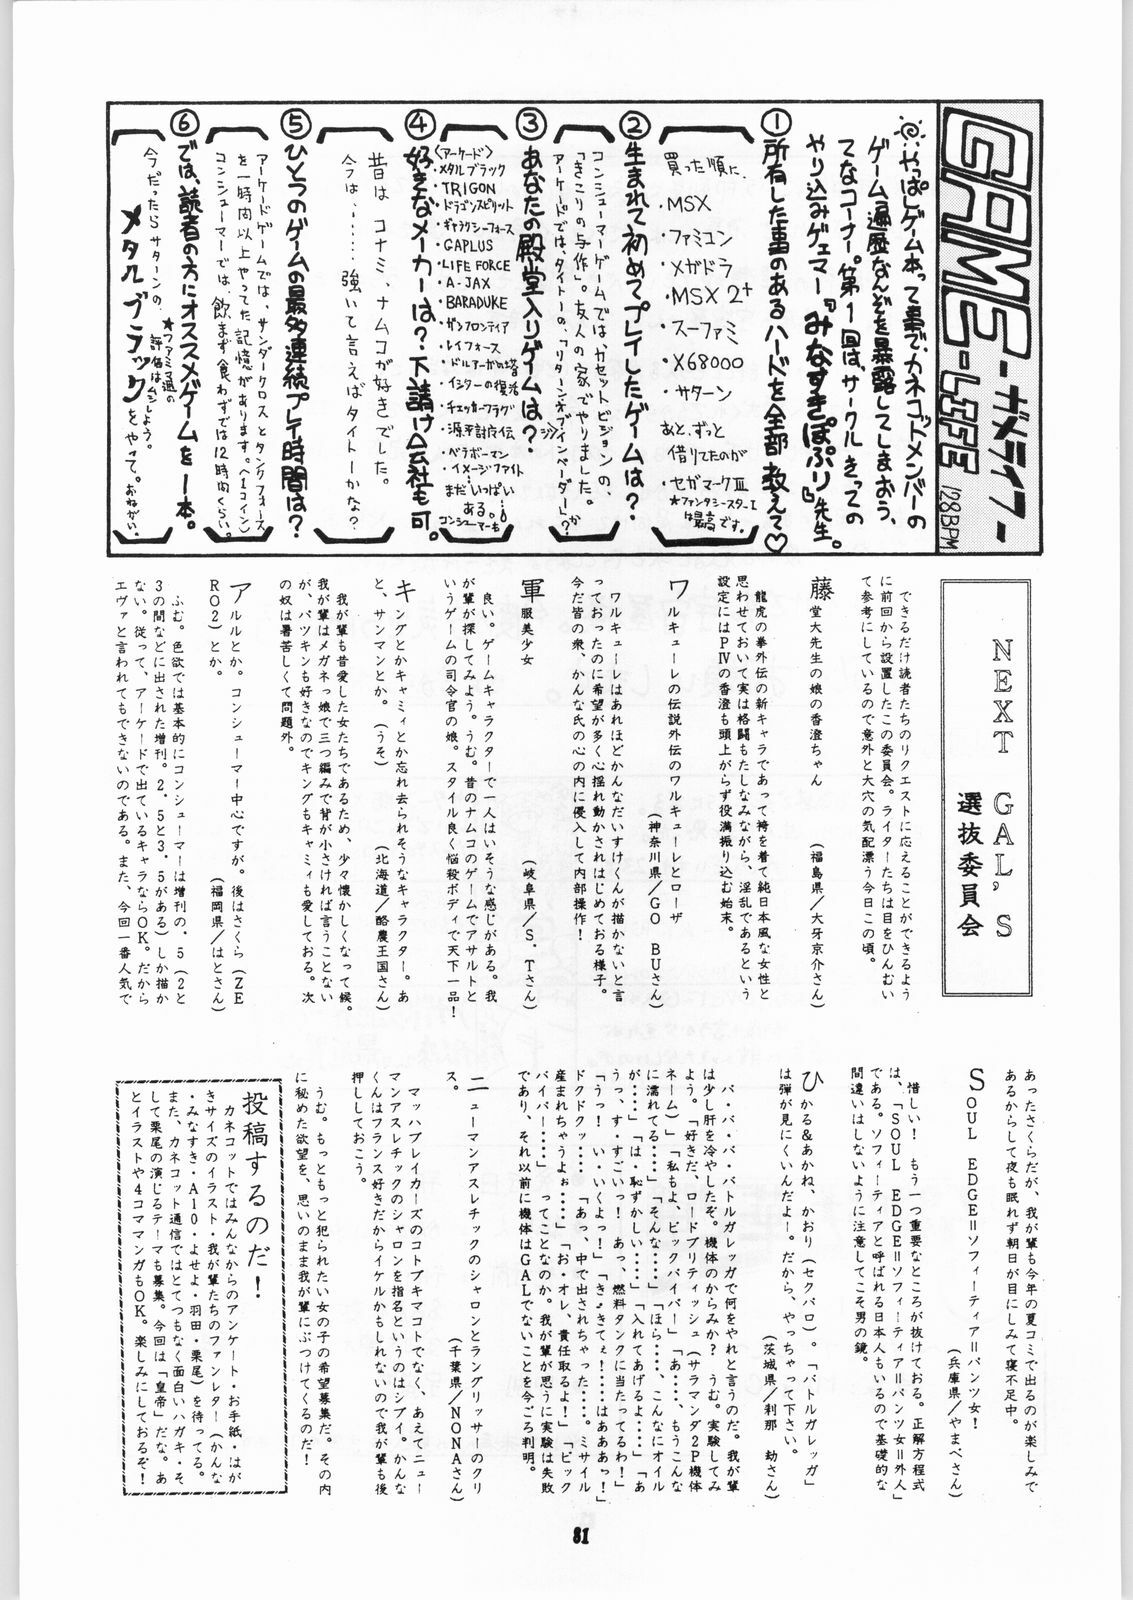 GAME-LIFE
-ガメライフ-
128BPM
やっぱしゲーム本って事で、カネゴットメンバーの
ゲーム遍歴なんぞを暴露してしまおう、
てなコーナー。第1回は、サークルきっての
やり込みゲェマー『みなすきぽぷり』先生。
①所有した事のあるハードを全部教えて♡
買った順に、
・MSX
・ファミコン
・メガドラ
・MSX2+
・スーファミ
・X68000
・サターン
あと、ずっと
借りてたのが
・セガマークⅢ
★ファンタシースターⅠ
は最高です。
②生まれて初めてプレイしたゲームは?
コンシューマーゲームでは、カセットビジョンの、
「きこりの与作」。友人の家でやりました。
アーケードではタイトーの、「リターンオブインベーダー」?か
③あなたの殿堂入りゲームは?
〈アーケード〉
・メタルブラック
・TRIGON
・ドラゴンスピリット
・ギャラクシーフォース
・GAPLUS
・LIFE FORCE
・A-JAX
・BARADUKE
・ガンフロンティア
・レイフォース
・ドルアーガの塔
・イシターの復活
・チェッカーフラグ
・源平討魔伝
・ベラボーマン
・イメージファイト
まだいっぱい
ある。
コンシューマーも
④好きなメーカーは?下請け会社も可。
昔は コナミ、ナムコが好きでした。
今は、……強いて言えばタイトーかな?
⑤ひとつのゲームの最多連続プレイ時間は?
アーケードゲームでは、サンダークロスとタンクフォース
を一時間以上やってた記憶があります。(1コイン)
コンシューマーでは、飲まず食わずでは12時間くらい。
⑥では、読者の方にオススメゲームを1本。
★ファミ通の
評価はムシしよう。
今だったらサターンの、
メタルブラックをやって。おねがい。
NEXT GAL'S
選抜委員会
できるだけ読者たちのリクエストに応えることができるよう
に前回から設置したこの委員会。ライターたちは目をひんむい
て参考にしているので意外と大穴の気配漂う今日この頃。
藤堂大先生の娘の香澄ちゃん
(福島県/大牙京介さん)
龍虎の拳外伝の新キャラであって袴を着て純日本風な女性と
思わせておいて実は格闘もたしなみながら、淫乱であるという
設定にはPⅣの香澄も頭上がらず役満振り込む始末。
ワルキューレの伝説外伝のワルキューレとローザ
(神奈川県/GO BUさん)
ワルキューレはあれほどかんなだいすけくんが描かないと言
っておったのに希望が多く心揺れ動かされはじめておる様子。
今だ皆の衆、かんな氏の心の内に侵入して内部操作!
軍服美少女
(岐阜県/S.Tさん)
良い。ゲームキャラクターで一人はいそうな感じがある。我
が輩が探してみよう。うむ。昔のナムコのゲームでアサルトと
いうゲームの司令官の娘。スタイル良く悩殺ボディで天下一品!
キングとかキャミィとか忘れ去られそうなキャラクター。あ
と、サンマンとか。(うそ)
(北海道/酪農王国さん)
我が輩も昔愛した女たちであるため、少々懐かしくなって候。
我が輩はメガネっ娘で三つ編みで背が小さければ言うことない
が、パツキンも好きなのでキングもキャミィも愛しておる。次
の奴は暑苦しくて問題外。
アルルとか。コンシューマー中心ですが。後はさくら(ZE
RO2)とか。
(福岡県/はとさん)
ふむ。色欲では基本的にコンシューマーは増刊の.5(2と
3の間などに出された増刊。2.5と3.5がある)しか描か
ない。従って、アーケードで出ているキャラならOK。だから
エヴァと言われてもできないのである。また、今回一番人気で
あったさくらだが、我が輩も今年の夏コミで出るのが楽しみで
あるからして夜も眠れず朝日が目にしみて寝不足中。
SOUL EDGE=ソフィーティア=パンツ女!
(兵庫県/やまべさん)
惜しい! もう一つ重要なところが抜けておる。正解方程式
は、「SOUL EDGE=ソフィーティア=パンツ女=外人」
である。ソフィーティアと呼ばれる日本人もいるので基礎的な
間違いはしないように注意してこそ男の鏡。
ひかる&あかね、かおり(セクパロ)。「バトルガレッガ」
は弾が見にくいんだよー。だから、やっちゃって下さい。
(茨城県/刹那 劫さん)
バ・バ・バ・バトルガレッガで何をやれと言うのだ。我が輩
は少し肝を冷やしたぞ。機体のからみか? うむ。実験してみ
よう。「好きだ、ロードブリティッシュ(サラマンダ2P機体
ネーム)」「私もよ、ビックバイパー」「あ‥‥、もうこんな
に濡れてる‥‥」「そんな‥‥」「ほら‥‥、こんなにオイル
が‥‥」「は・恥ずかしい‥‥」「入れてあげるよ‥‥」「あ
うっ、す・すごいっ! あっ、燃料タンクに当たってるわ!」
「うっ! い・いくよっ!」「き・きてぇ!‥‥はあああっ!」
ドクドクッ‥‥ 「あっ、中で出されちゃった‥‥。ミサイル
産まれちゃうよぉ‥‥」「お・オレ、責任取るよ!」「ビック
バイパー‥‥」 ってことなのか。我が輩が思うに実験は失敗
であり、それ以前に機体はGALでないことを今ごろ判明。
ニューマンアスレチックのシャロンとラングリッサーのクリ
ス。
(千葉県/NONAさん)
マッハブレイカーズのコトブキマコトでなく、あえてニュー
マンアスレチックのシャロンを指名というのはシブイ。かんな
くんはフランス好きだからイケルかもしれないので我が輩も後
押ししておこう。
うむ。もっともっと犯られたい女の子の希望募集だ。その内
に秘めた欲望を、思いのまま我が輩にぶつけてくるのだ!
投稿するのだ!
カネコットではみんなからのアンケート・お手紙・はが
きサイズのイラスト・我が輩たちのファンレター(かんな
・みなすき・A10・よせよ・羽田・栗尾)を待ってる。
また、カネコット通信ではとてつもなく面白いハガキ・そ
して栗尾の演じるテーマも募集。今回は「皇帝」だな。あ
とイラストや4コママンガもOK。楽しみにしておるぞ!
81